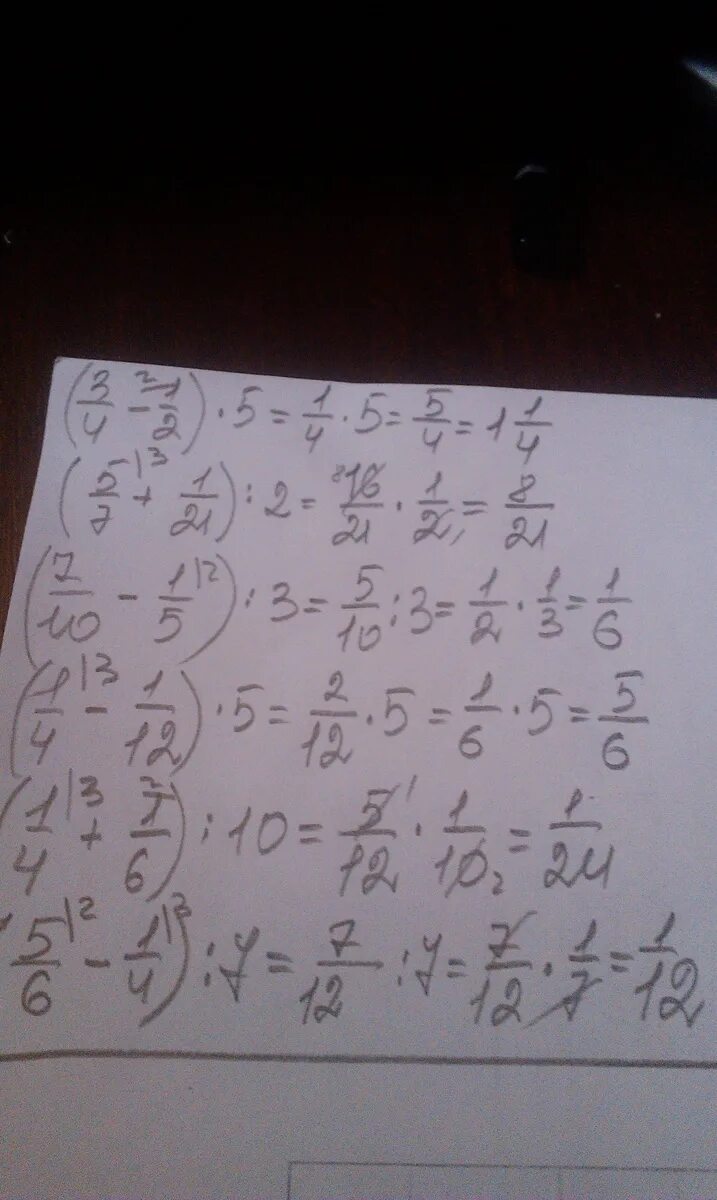 (3/4 - 1/2 |2) · 5 = 1/4 · 5 = 5/4 = 1 1/4
(5/7 |3 + 1/21) : 2 = 16/21 8 · 1/2 1 = 8/21
(7/10 - 1/5 |2) : 3 = 5/10 : 3 = 1/2 · 1/3 = 1/6
(1/4 |3 - 1/12) · 5 = 2/12 · 5 = 1/6 · 5 = 5/6
(1/4 |3 + 1/6 |2) : 10 = 5/12 1 · 1/10 2 = 1/24
(5/6 |2 - 1/4 |3) : 7 = 7/12 : 7 = 7/12 · 1/7 = 1/12